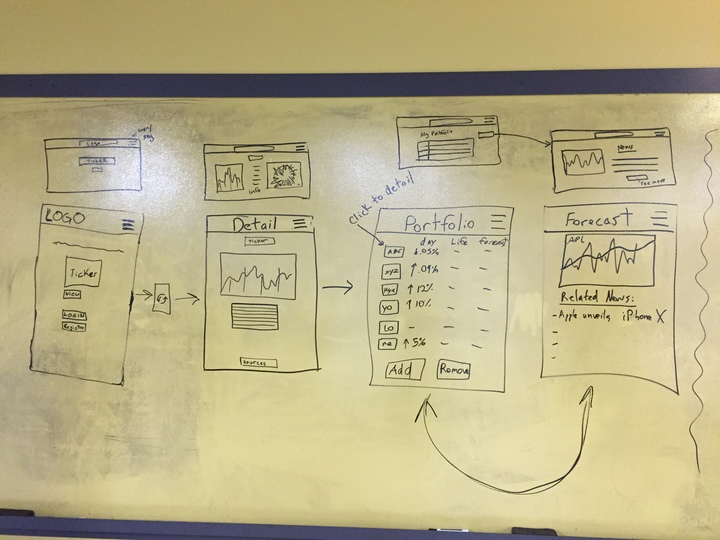 LOGO
TICKER
Info
My Portfolio
News
see more
LOGO
Ticker
View
LOGIN
Register
Detail
Ticker
sources
Click to detail
Portfolio
day Life forecast
ABC ↓.05% - -
xyz ↑.09% - -
↑12% - -
yo ↑10% - -
LO - - -
na ↑5% - -
Add Remove
Forecast
APL
Related News:
- Apple unveils iPhone X
-
-
-